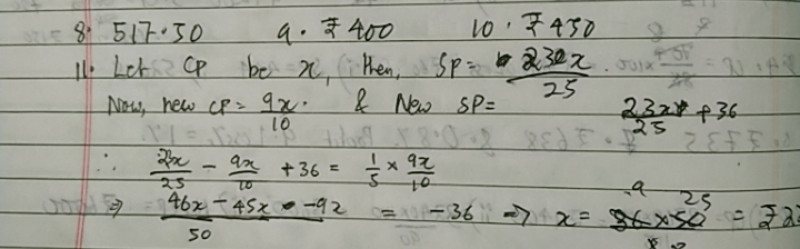 8. 517.50 9. ₹400 10. ₹450
11. Let CP be x, then, SP = 23x/25
Now, new CP = 9x/10. & New SP = 23x/25 + 36
∴ 23x/25 - 9x/10 + 36 = 1/5 × 9x/10
⇒ (46x - 45x - 9x)/50 = -36 ⇒ x = 36×50